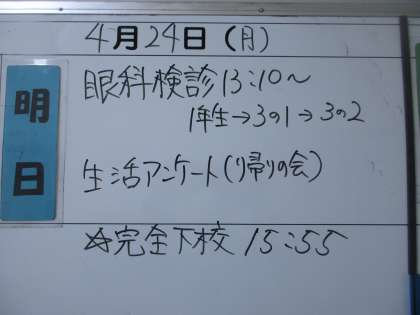 4月24日(月)
明日
眼科検診13:10～
1年生→3の1→3の2
生活アンケート(帰りの会)
☆完全下校 15:55